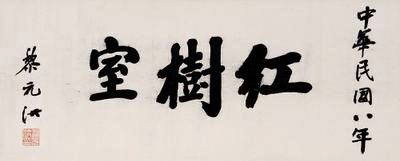 中華民國八年
紅樹室
黎元洪